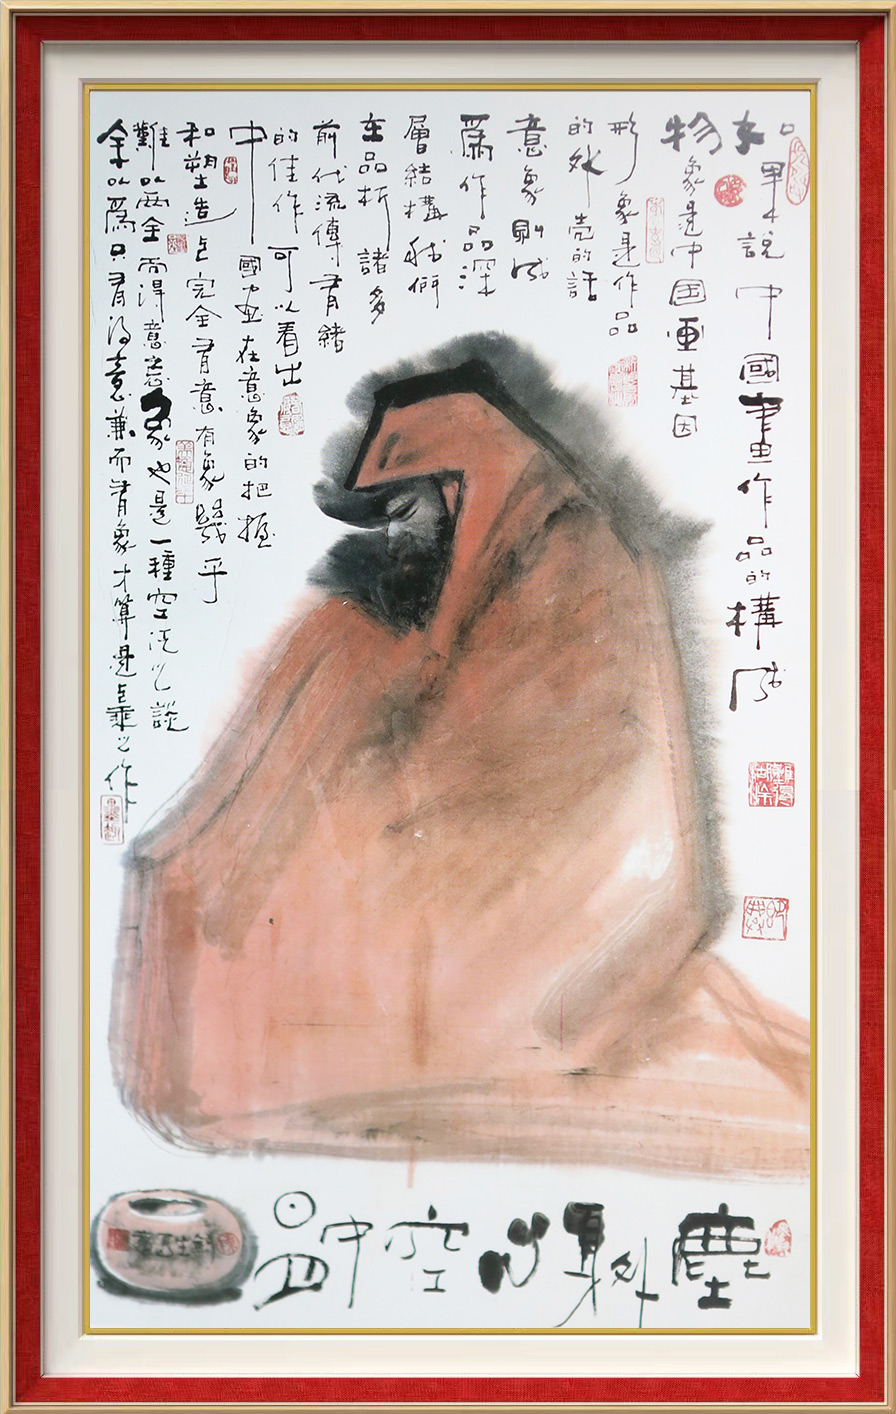 如果說中國畫作品的構成
物象是中国画基因
形象是作品
的外壳的話
意象則成
爲作品深
層結構我們
在品析諸多
前代流傳有緒
的佳作可以看出
中國画在意象的把握
和塑造上完全有意有象幾乎
難以两全而得意忘象也是一種空泛之談
余以爲只有得意兼而有象才算是上乘之作
塵外心空中